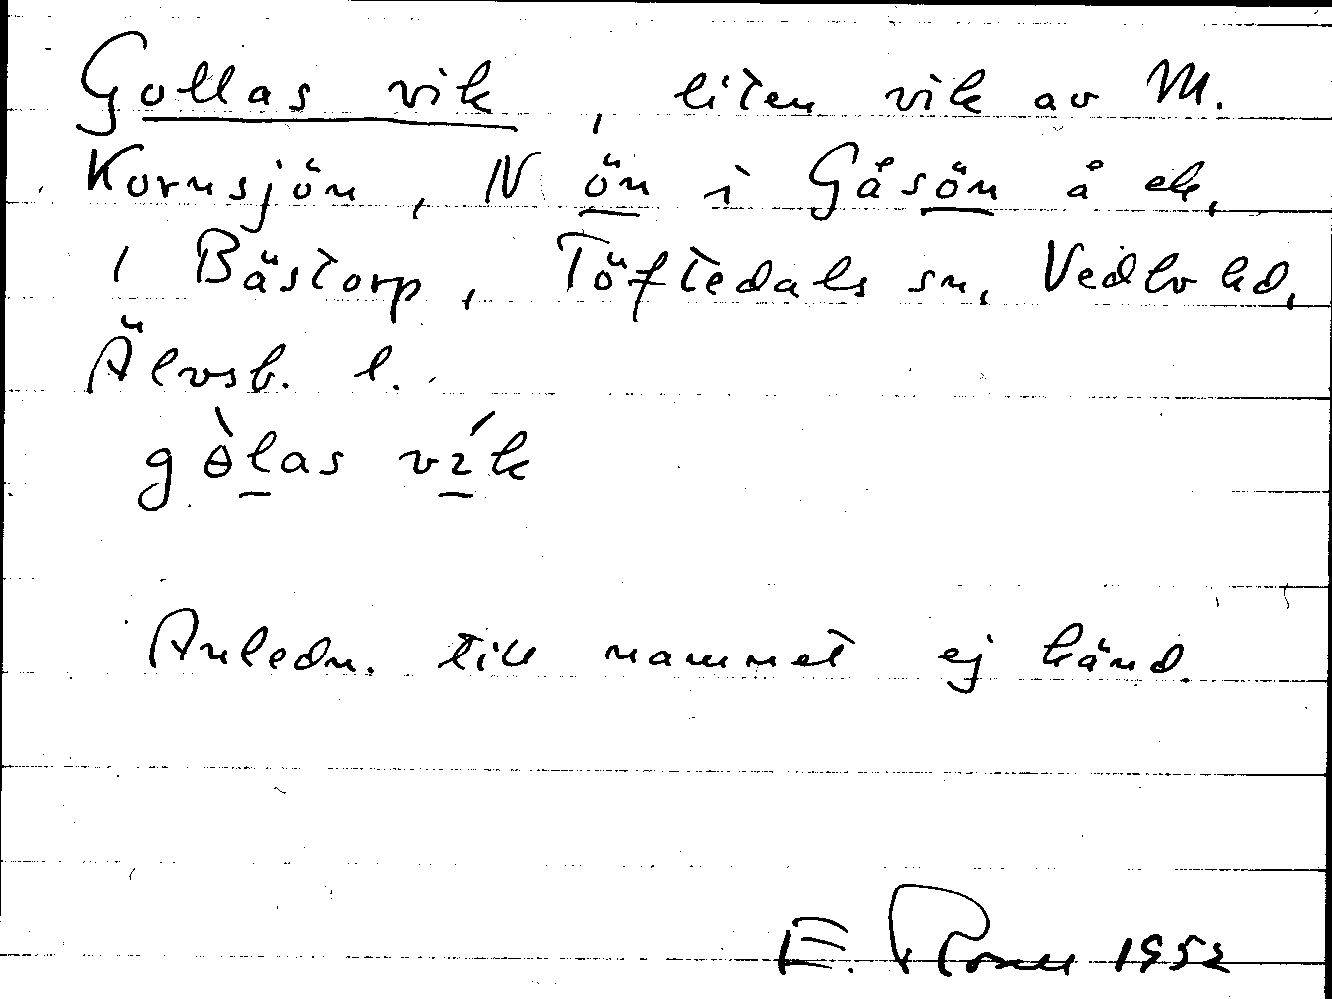 Gollas vik, liten vik av M.
Kornsjön, N ön i Gåsön å ek.
i Bästorp, Töftedals sn, Vedbo hd,
Älvsb. l.
gòlas vík
Anledn. till namnet ej känd.
E. 1952